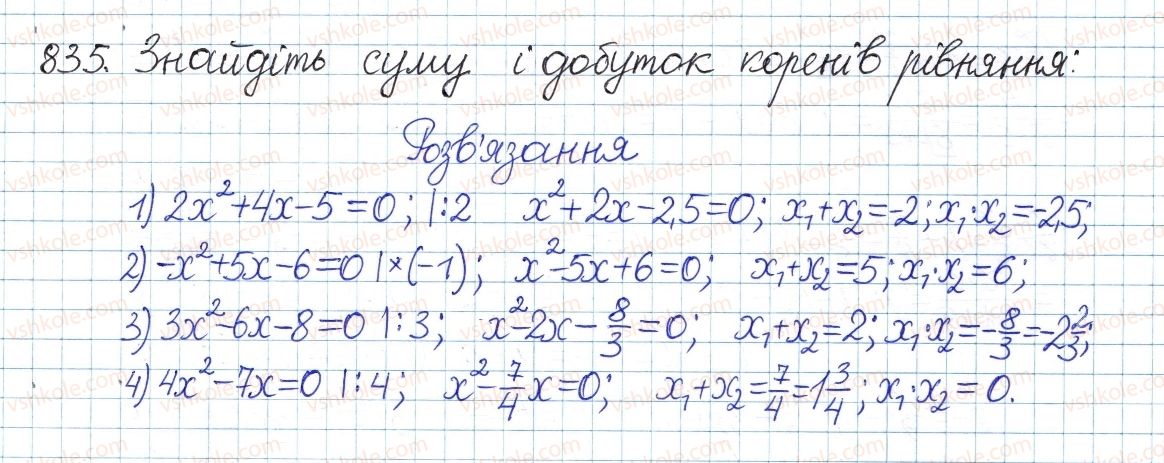 835. Знайдіть суму і добуток коренів рівняння:
Розв'язання
1) 2x²+4x-5=0; |:2 x²+2x-2,5=0; x₁+x₂=-2; x₁·x₂=-2,5;
2) -x²+5x-6=0 |×(-1); x²-5x+6=0; x₁+x₂=5; x₁·x₂=6;
3) 3x²-6x-8=0 |:3; x²-2x-8/3=0; x₁+x₂=2; x₁·x₂=-8/3=-2 2/3;
4) 4x²-7x=0 |:4; x²-7/4x=0; x₁+x₂=7/4=1 3/4; x₁·x₂=0.